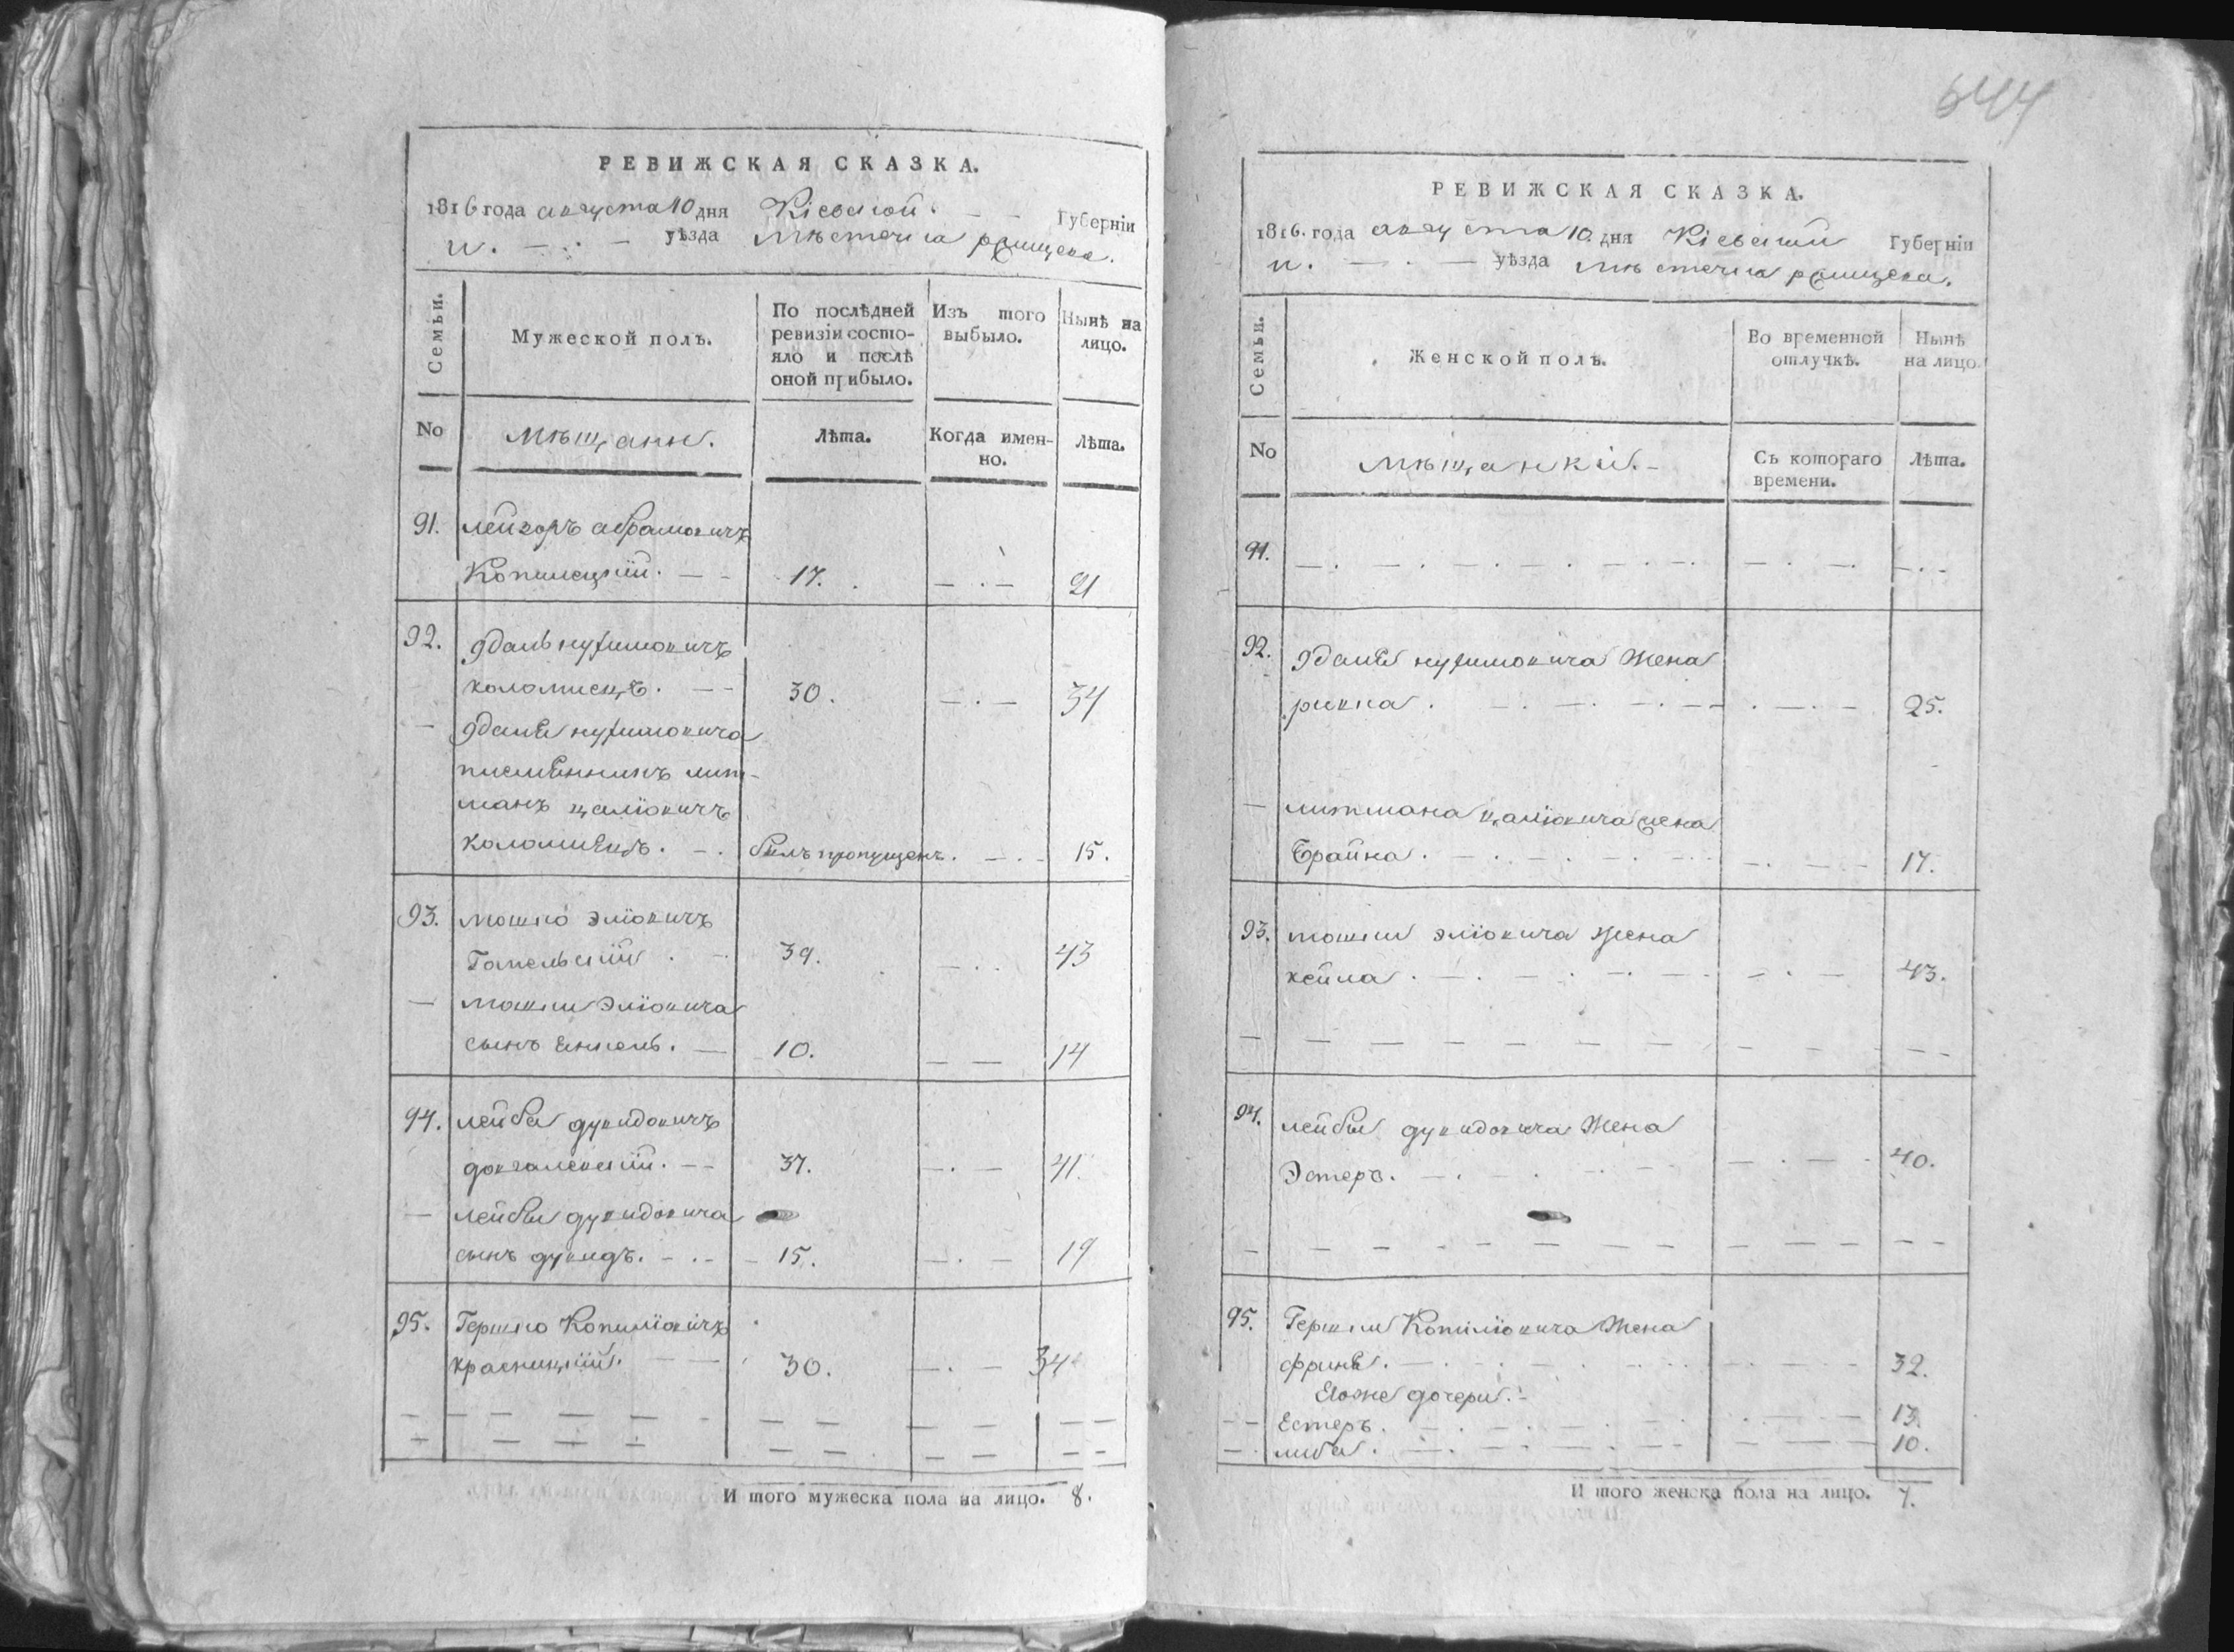 РЕВИЖСКАЯ СКАЗКА.
1816 года августа 10 дня Кіевской. Губерніи
и. уѣзда Мѣстечка ржищева.
Семьи.
Мужеской полъ.
По послѣдней ревизіи состояло и послѣ оной прибыло.
Изъ того выбыло.
Нынѣ на лицо.
No
Мѣщане.
Лѣта.
Когда именно.
Лѣта.
91. лейзоръ абрамовичъ
Копилецкій. 17. 21
92. Юдаль нухимовичъ
коломиецъ. 30. 34
— Юдаля нухимовича
племѣнникъ лит-
манъ цалїовичъ
коломиецъ. былъ пропущенъ. 15.
93. мошко элїовичъ
Гомельскій 39. 43
— мошки элїовича
сынъ Енкель. 10. 14
94. лейба дувидовичъ
довгалевскій. 37. 41.
— лейбы дувидовича
сынъ дувидъ. 15. 19
95. Гершко Копилїовичъ
красницкій. 30. 34
И того мужеска пола на лицо. 8.
644
РЕВИЖСКАЯ СКАЗКА.
1816. года августа 10. дня Кіевской Губерніи
и. уѣзда Мѣстечка ржищева.
Семьи.
Женской полъ.
Во временной отлучкѣ.
Нынѣ на лицо.
No
Мѣщанкі.
Съ котораго времени.
Лѣта.
91.
92. Юдаля нухимовича Жена
ривка. 25.
— литмана цалїовича жена
Брайна. 17.
93. мошки элїовича жена
кейла. 43.
94. лейбы дувидовича Жена
Эстеръ. 40.
95. Гершки Копилїовича Жена
фрима. 32.
Егоже дочери.
Естеръ. 13.
либа. 10.
И того женска пола на лицо. 7.